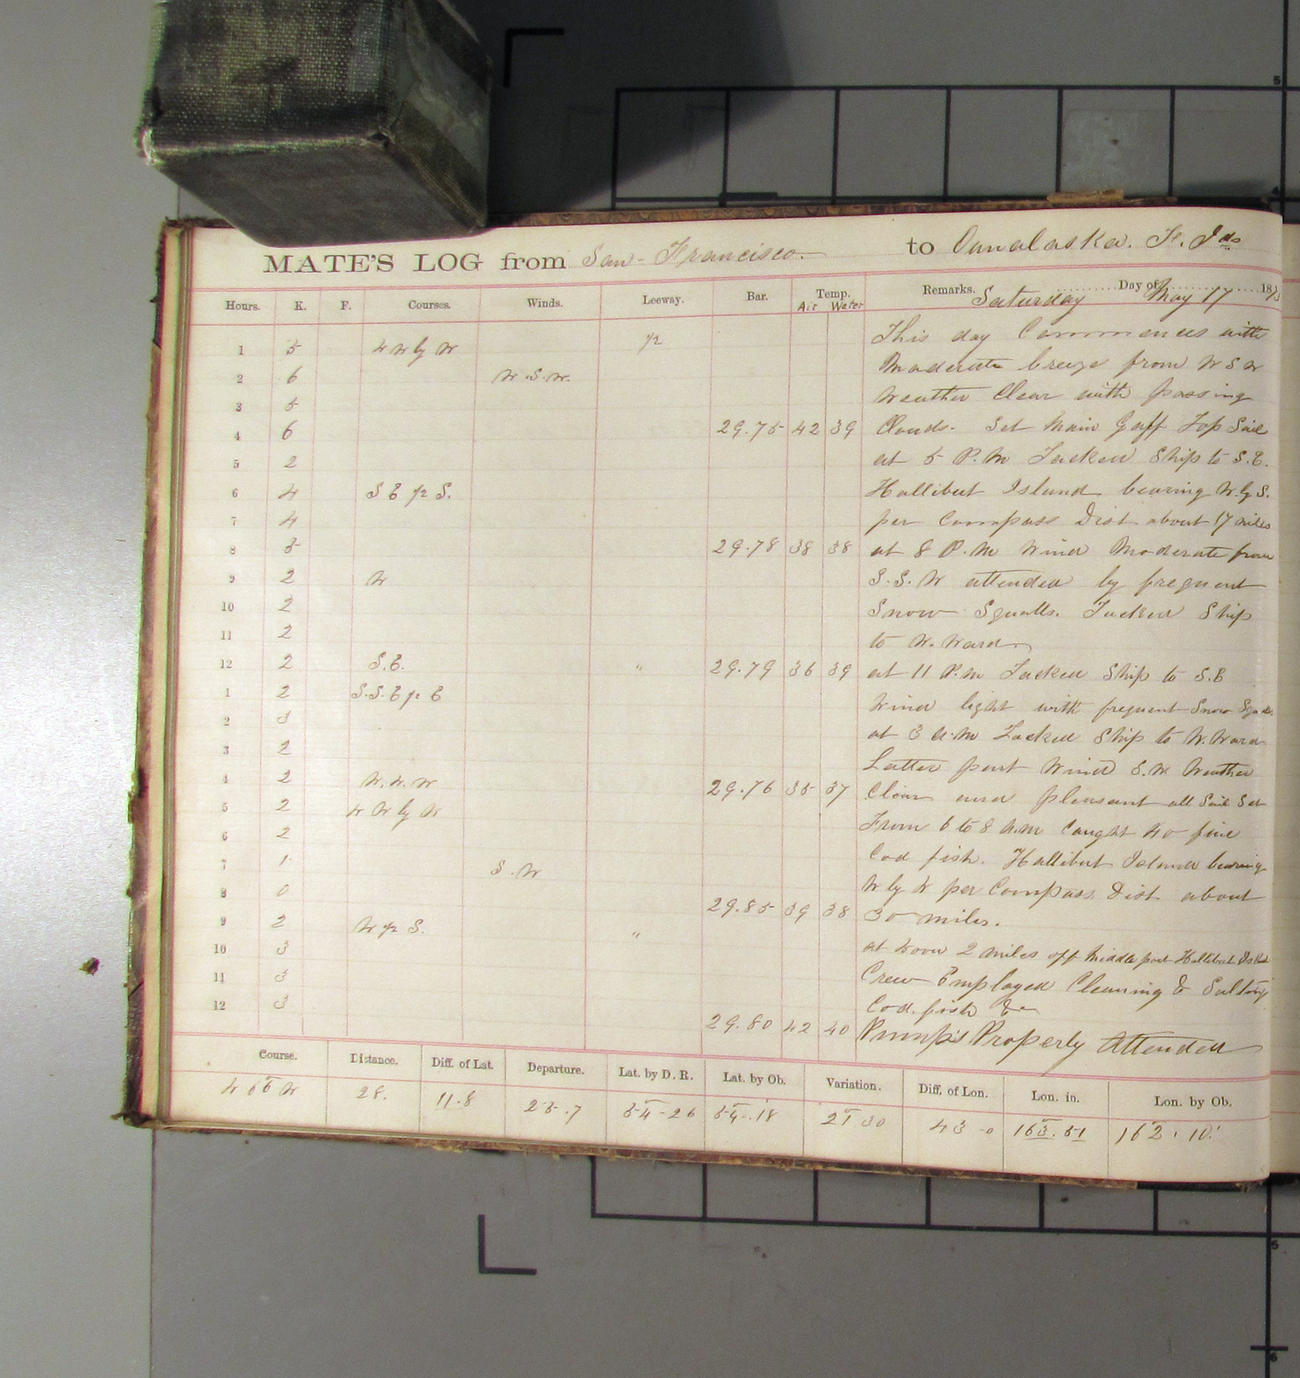 MATE'S LOG from San Francisco. to Ounalaska. F. Ids
Hours. K. F. Courses. Winds. Leeway. Bar. Temp. Remarks. Day of 18
Air Water Saturday May 17
This day Commences with
1 5 N W by W 1/2
Moderate breeze from W S W
2 6 W.S.W.
Weather Clear with passing
3 5
4 6 29.75 42 39 Clouds. Set Main Gaff Top Sail
5 2 at 5 P.M Tacked Ship to S.E.
6 4 S E 1/2 S. Hallibut Island bearing W. by S.
7 4 per Compass Dist about 17 miles
8 5 29.78 38 38 at 8 P.M Wind Moderate from
9 2 W S.S.W attended by frequent
10 2 Snow Squalls. Tacked Ship
11 2 to W.Ward
12 2 S.E. " 29.79 36 39 at 11 P.M Tacked Ship to S.E
1 2 S.S.E 1/2 E Wind light with frequent Snow
2 3 at 3 A.M Tacked Ship to W.Ward
3 2 Latter part Wind S.W. Weather
4 2 W.N.W 29.76 35 37 Clear and pleasant all Sail Set
5 2 N W by W
From 6 to 8 A.M Caught 40 fine
6 2
Cod fish. Hallibut Island bearing
7 1 S.W
W by W per Compass Dist about
8 0 29.85 39 38 30 miles.
9 2 W 1/2 S. "
at Noon 2 miles off Middle part Hallibut Island
10 3
Crew Employed Cleaning & Salting
11 3
Cod fish &c
12 3 29.80 42 40 Pump's Properly Attended
Course. Distance. Diff. of Lat. Departure. Lat. by D. R. Lat. by Ob. Variation. Diff. of Lon. Lon. in. Lon. by Ob.
N 66 W 28. 11.8 25.7 54-26 54-.18 21 30 43 -0 163.51 162.10